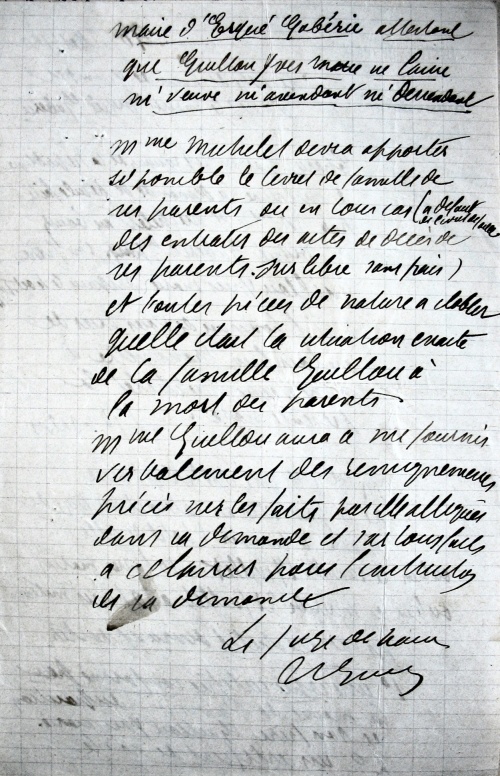 maire d'Ergué Gabéric attestant
que Guillou Yves Marie ne laisse
ni veuve ni ascendant ni descendant
Mme Michelet devra apporter
si possible le livret de famille de
ses parents ou en tous cas (à défaut
de livret de famille
des extraits des actes de décès de
ses parents sur libre sans frais)
et toutes pièces de nature à établir
quelle était la situation exacte
de la famille Guillou à
la mort des parents
Mme Guillou aura à me fournir
verbalement des renseignements
précis sur les faits par elle allégués
dans sa demande et sur tous faits
à éclairer pour l'instruction
de sa demande
Le Juge de paix